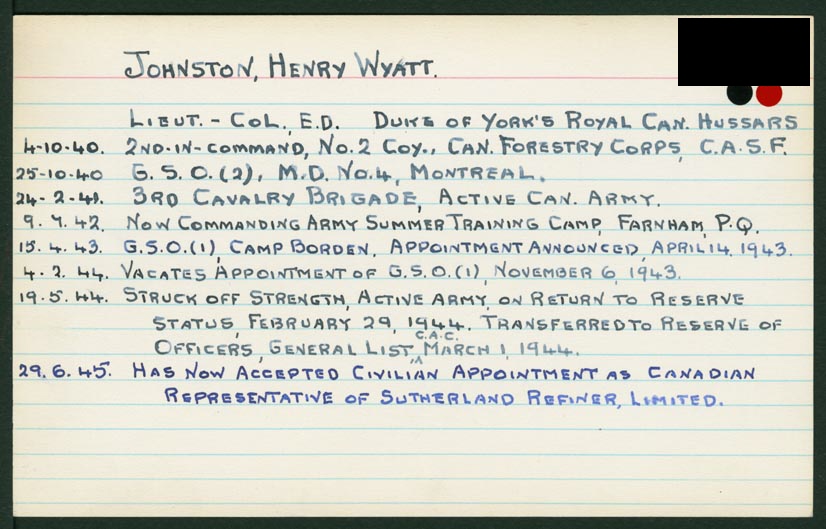 JOHNSTON, HENRY WYATT.
LIEUT. - COL., E.D. DUKE OF YORK'S ROYAL CAN. HUSSARS
4-10-40. 2ND-IN-COMMAND, NO.2 COY., CAN. FORESTRY CORPS, C.A.S.F.
25-10-40 G.S.O.(2), M.D. NO.4, MONTREAL.
24-2-41. 3RD CAVALRY BRIGADE, ACTIVE CAN. ARMY.
9.7.42. NOW COMMANDING ARMY SUMMER TRAINING CAMP, FARNHAM, P.Q.
15.4.43. G.S.O.(1), CAMP BORDEN, APPOINTMENT ANNOUNCED, APRIL 14, 1943.
4.2.44. VACATES APPOINTMENT OF G.S.O.(1), NOVEMBER 6, 1943.
19.5.44. STRUCK OFF STRENGTH, ACTIVE ARMY, ON RETURN TO RESERVE
STATUS, FEBRUARY 29, 1944. TRANSFERRED TO RESERVE OF
OFFICERS, GENERAL LIST, C.A.C. MARCH 1, 1944.
29.6.45. HAS NOW ACCEPTED CIVILIAN APPOINTMENT AS CANADIAN
REPRESENTATIVE OF SUTHERLAND REFINER, LIMITED.